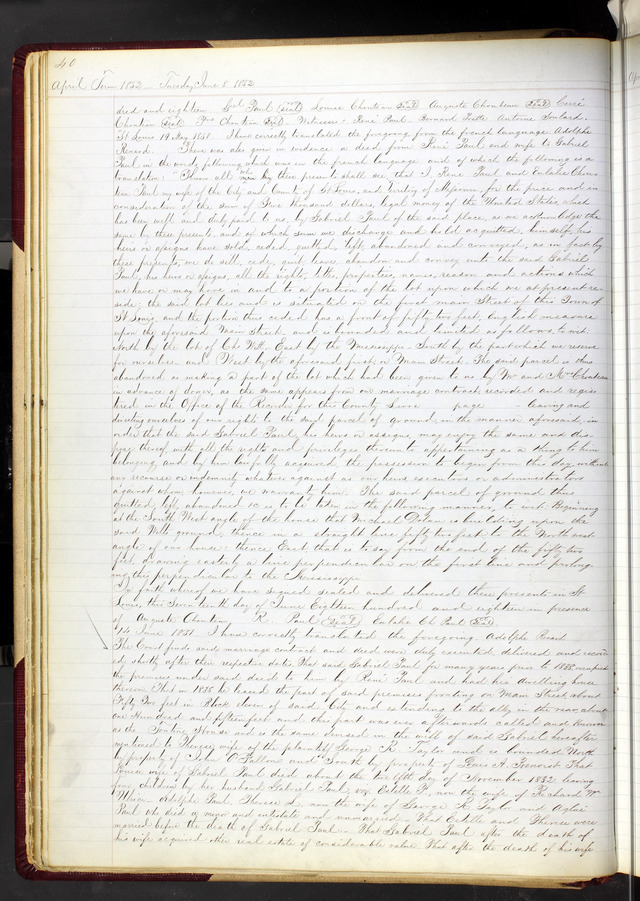 40
April Term 1852 Tuesday June 8. 1852
dred and eighteen Gab Paul Seal Louise Chouteau Seal Auguste Chouteau Seal Cerré
Chouteau Seal Chouteau Seal Witnesses: René Paul Bernard Pratte Antoine Soulard.
St Louis 19 May 1851. I have correctly translated the foregoing from the french language Adolphe
Renard. There was also given in evidence a deed from René Paul and wife to Gabriel
Paul in the words following which was in the french language and of which the following is a
translation: "Know all men by these presents shall see, that I René Paul and Eulalie Chou-
teau Paul my wife of the City and County of St Louis, and Territory of Missouri, for the price and in
consideration of the sum of five thousand dollars, legal money of the United States, which
has been well and duly paid to us, by Gabriel Paul of the said place, as we acknowledge the
same by these presents, and of which sum we discharge and hold acquitted, himself, his
heirs or assigns have sold, ceded, quitted, left, abandoned and conveyed, as in fact by
these presents, we do sell, cede, quit, leave, abandon and convey unto the said Gabriel
Paul, his heirs or assigns, all the rights, title, properties, names, reason and actions which
we have or may have in and to a portion of the lot upon which we at present re-
side; the said lot lies and is situated on the first main Street of this Town of
St Louis, and the portion thus ceded has a front of fifty two feet, English measure
upon the aforesaid Main Street, and is bounded and limited as follows, to wit:
North by the lot of Wilt, East by the Mississippi South by the part which we reserve
for ourselves and West by the aforesaid first or Main Street. The said parcel is thus
abandoned as making a part of the lot which had been given to us by Mr and Mrs Chouteau
in advance of dower, as the same appears from our marriage contract recorded and regis-
tered in the Office of the Recorder for this County Livre page leaving and
divesting ourselves of our rights to the said parcel of ground, in the manner aforesaid, in
order that the said Gabriel Paul, his heirs or assigns may enjoy the same and dis-
pose thereof with all the rights and privileges thereunto appertaining as a thing to him
belonging, and by him lawfully acquired, the possession to begin from this day without
any recourse or indemnity whatever against us our heirs executors or administrators
against whom however, we warrant to him. The said parcel of ground thus
quitted, left, abandoned &c is to be taken in the following manner, to wit: Beginning
at the South West angle of the house that Michael Dolan is building upon the
said Wilt ground, thence in a straight line fifty two feet to the North west
angle of our house: thence East, that is to say from the end of the fifty two
feet, drawing easterly a line perpendicular on the first line and prolong-
ing this perpendicular to the Mississippi.
In faith whereof we have signed sealed and delivered these presents in St
Louis, this Seventeenth day of June Eighteen hundred and eighteen in presence
of Auguste Chouteau R. Paul Seal Eulalie Ch Paul Seal
June 1851. I have correctly translated the foregoing. Adolphe Renard
The Court finds said marriage contract and deed were duly executed delivered and record-
ed shortly after their respective dates. That said Gabriel Paul for many years prior to 1838 occupied
the premises under said deed to him by René Paul and had his dwelling house
thereon. That in 1838 he leased the part of said premises fronting on Main Street about
Fifty Two feet in Block eleven of said City and extending to the alley in the rear about
one Hundred and fifteen feet and this part was ever afterwards called and known
as the House and is the same devised in the will of said Gabriel hereafter
mentioned to Therese wife of the plaintiff George R. Taylor and is bounded North
by property of John O'Fallon and South by property of That
Louise wife of Gabriel Paul died about the day of November 1832 leaving
four children by her husband Gabriel Paul, viz, Estelle P. now the wife of Richard W
Adolphe Paul. Therese L. now the wife of George R Taylor and
Paul who died a minor and intestate and unmarried. That Estelle and Therese were
married before the death of Gabriel Paul. That Gabriel Paul after the death of
his wife acquired other real estate of considerable value. That after the death of his wife